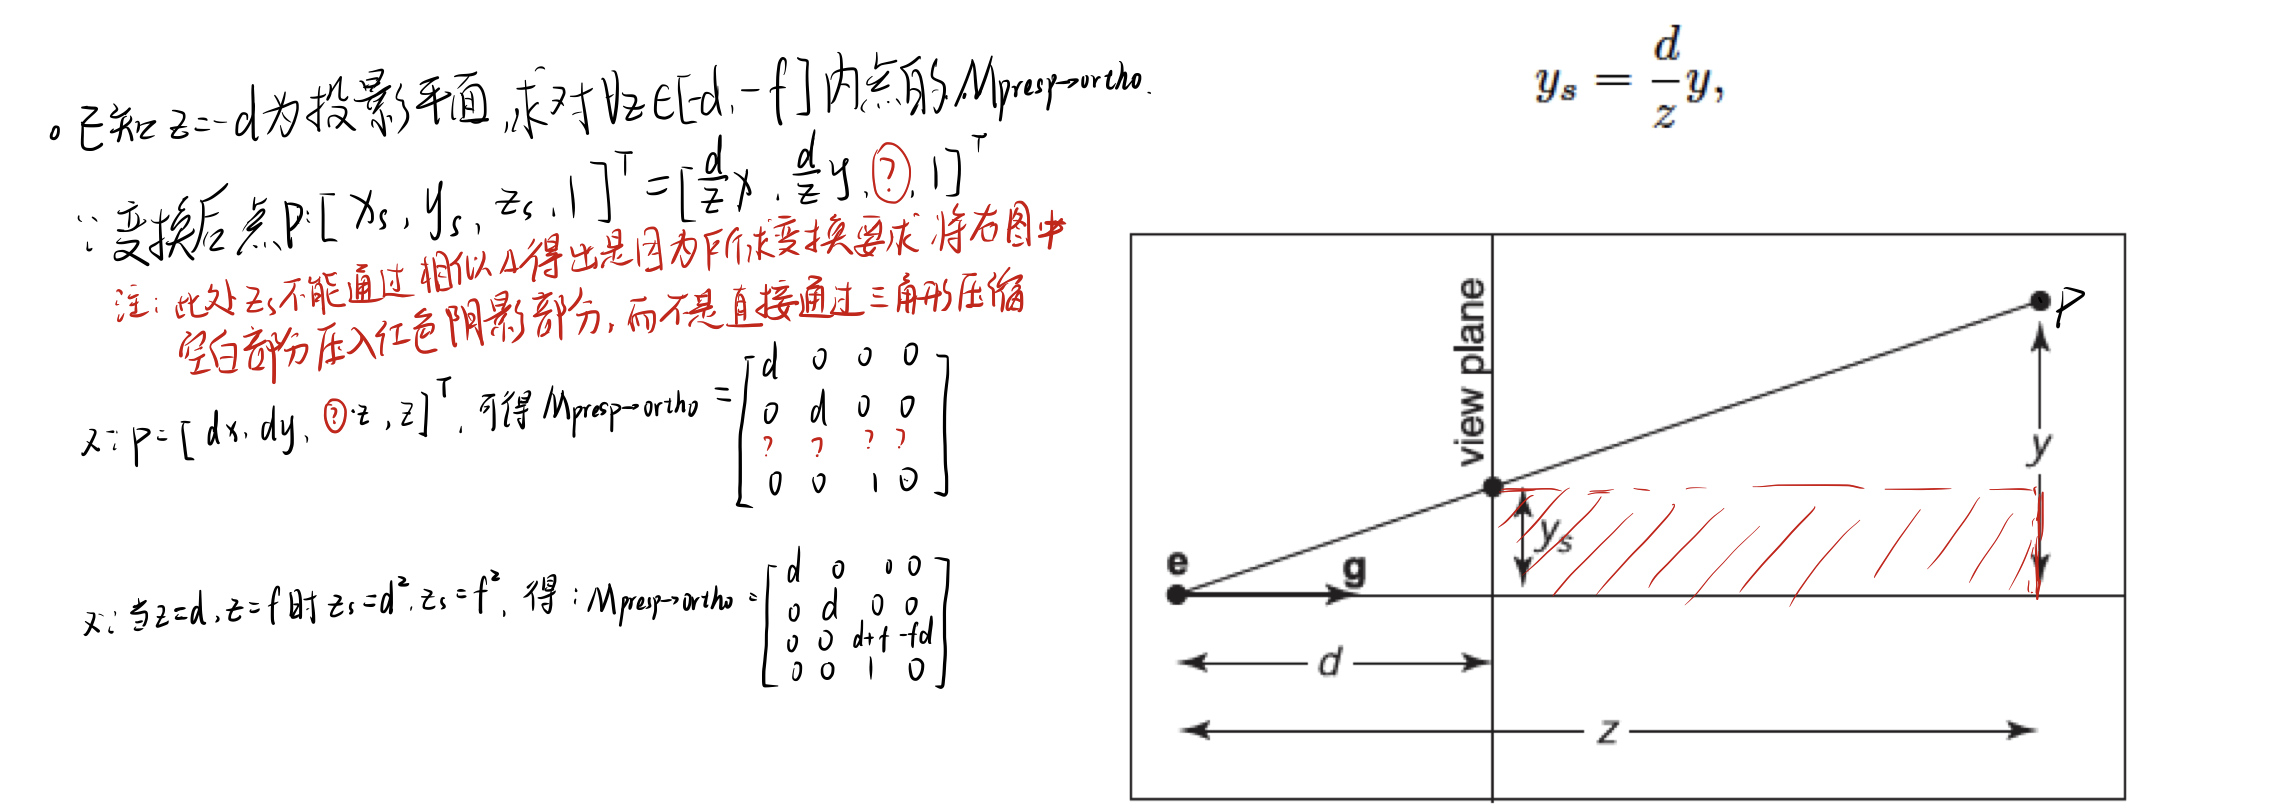 。已知 z=-d为投影平面,求对∀z∈[-d,-f]内点的Mpresp→ortho.
∵变换后点P:[xs, ys, zs, 1]ᵀ=[d/z x, d/z y, ?, 1]ᵀ
注:此处zs不能通过相似△得出是因为所求变换要求 将右图中
空白部分压入红色阴影部分,而不是直接通过三角形压缩
又∵P=[dx, dy, ?·z, z]ᵀ, 可得 Mpresp→ortho =
d 0 0 0
0 d 0 0
? ? ? ?
0 0 1 0
又∵当z=d, z=f时 zs=d², zs=f², 得:Mpresp→ortho=
d 0 0 0
0 d 0 0
0 0 d+f -fd
0 0 1 0
ys = d/z y,
view plane
P
y
ys
e
g
d
z